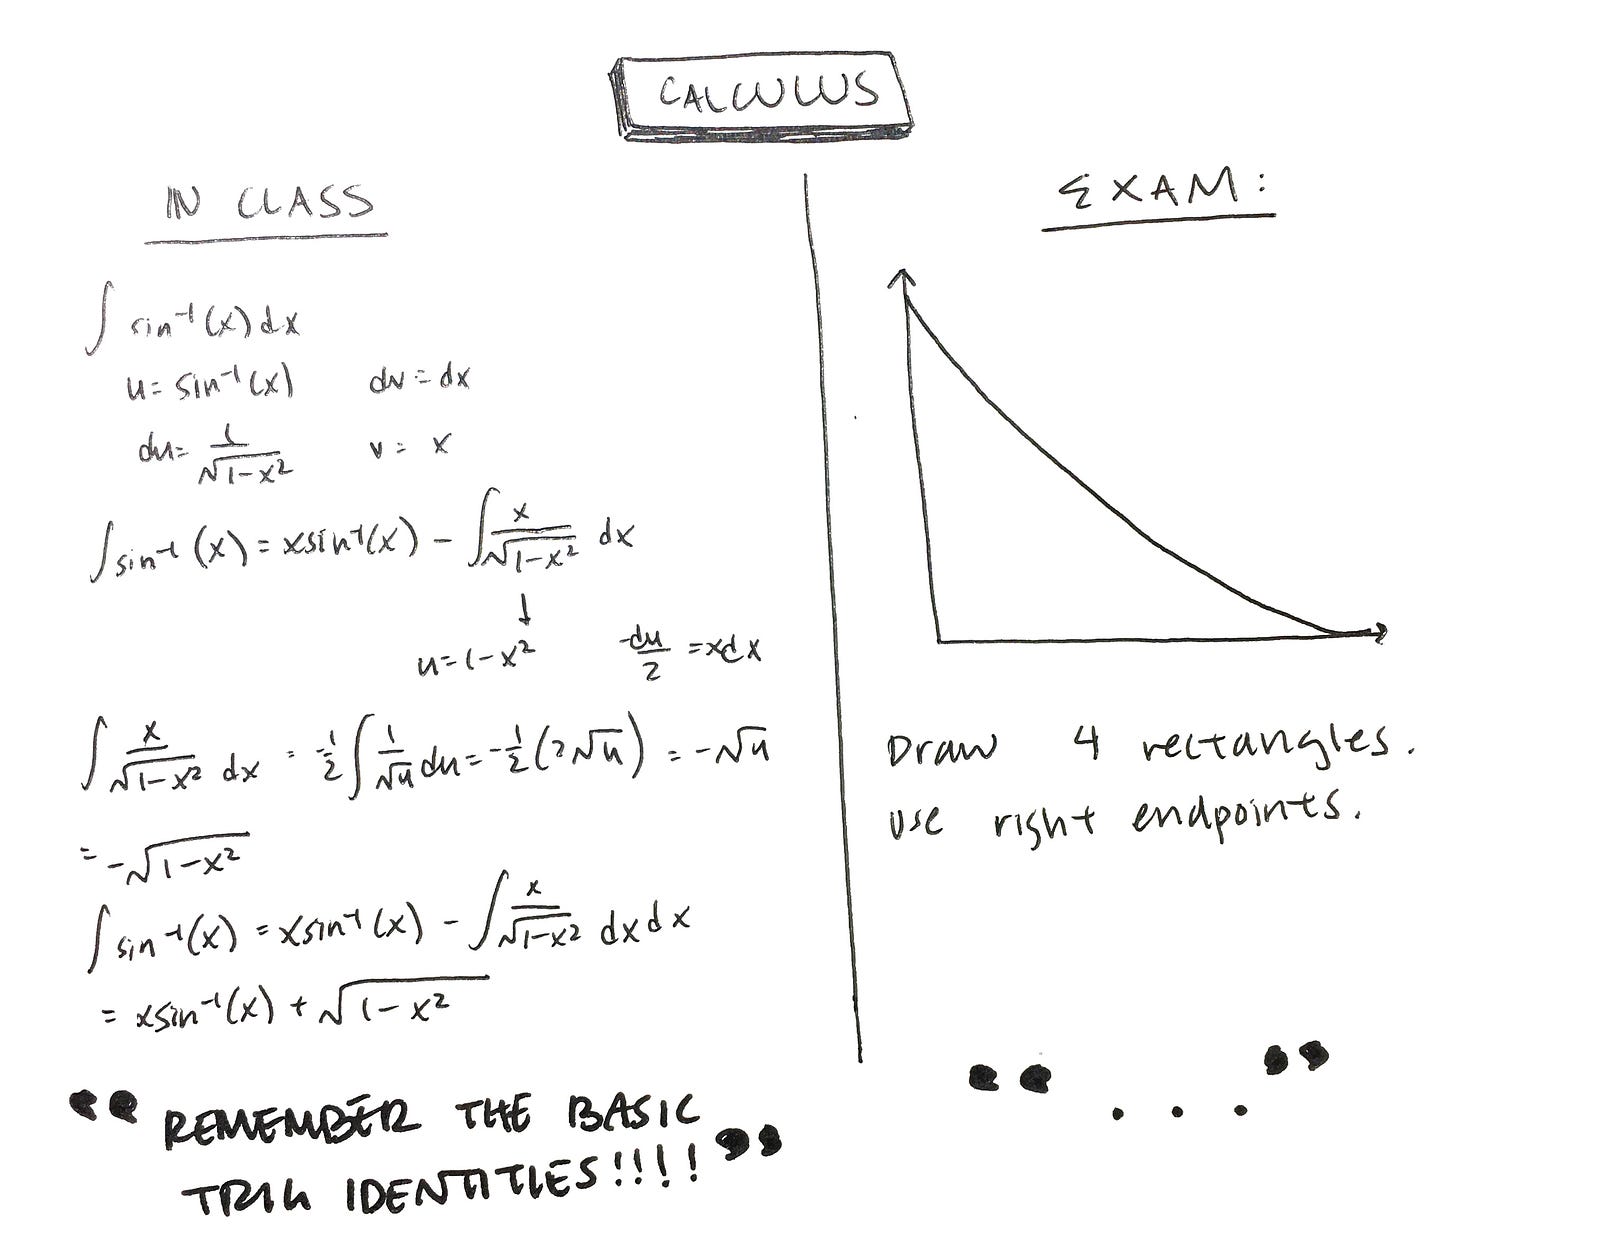 CALCULUS
IN CLASS
∫ sin⁻¹(x) dx
u = sin⁻¹(x) dv = dx
du = 1/√(1-x²) v = x
∫ sin⁻¹(x) = xsin⁻¹(x) - ∫ x/√(1-x²) dx
↓
u = 1-x² -du/2 = xdx
∫ x/√(1-x²) dx = -1/2 ∫ 1/√u du = -1/2 (2√u) = -√u
= -√(1-x²)
∫ sin⁻¹(x) = xsin⁻¹(x) - ∫ x/√(1-x²) dx dx
= xsin⁻¹(x) + √(1-x²)
“REMEMBER THE BASIC
TRIG IDENTITIES!!!!”
EXAM:
Draw 4 rectangles.
use right endpoints.
“...”